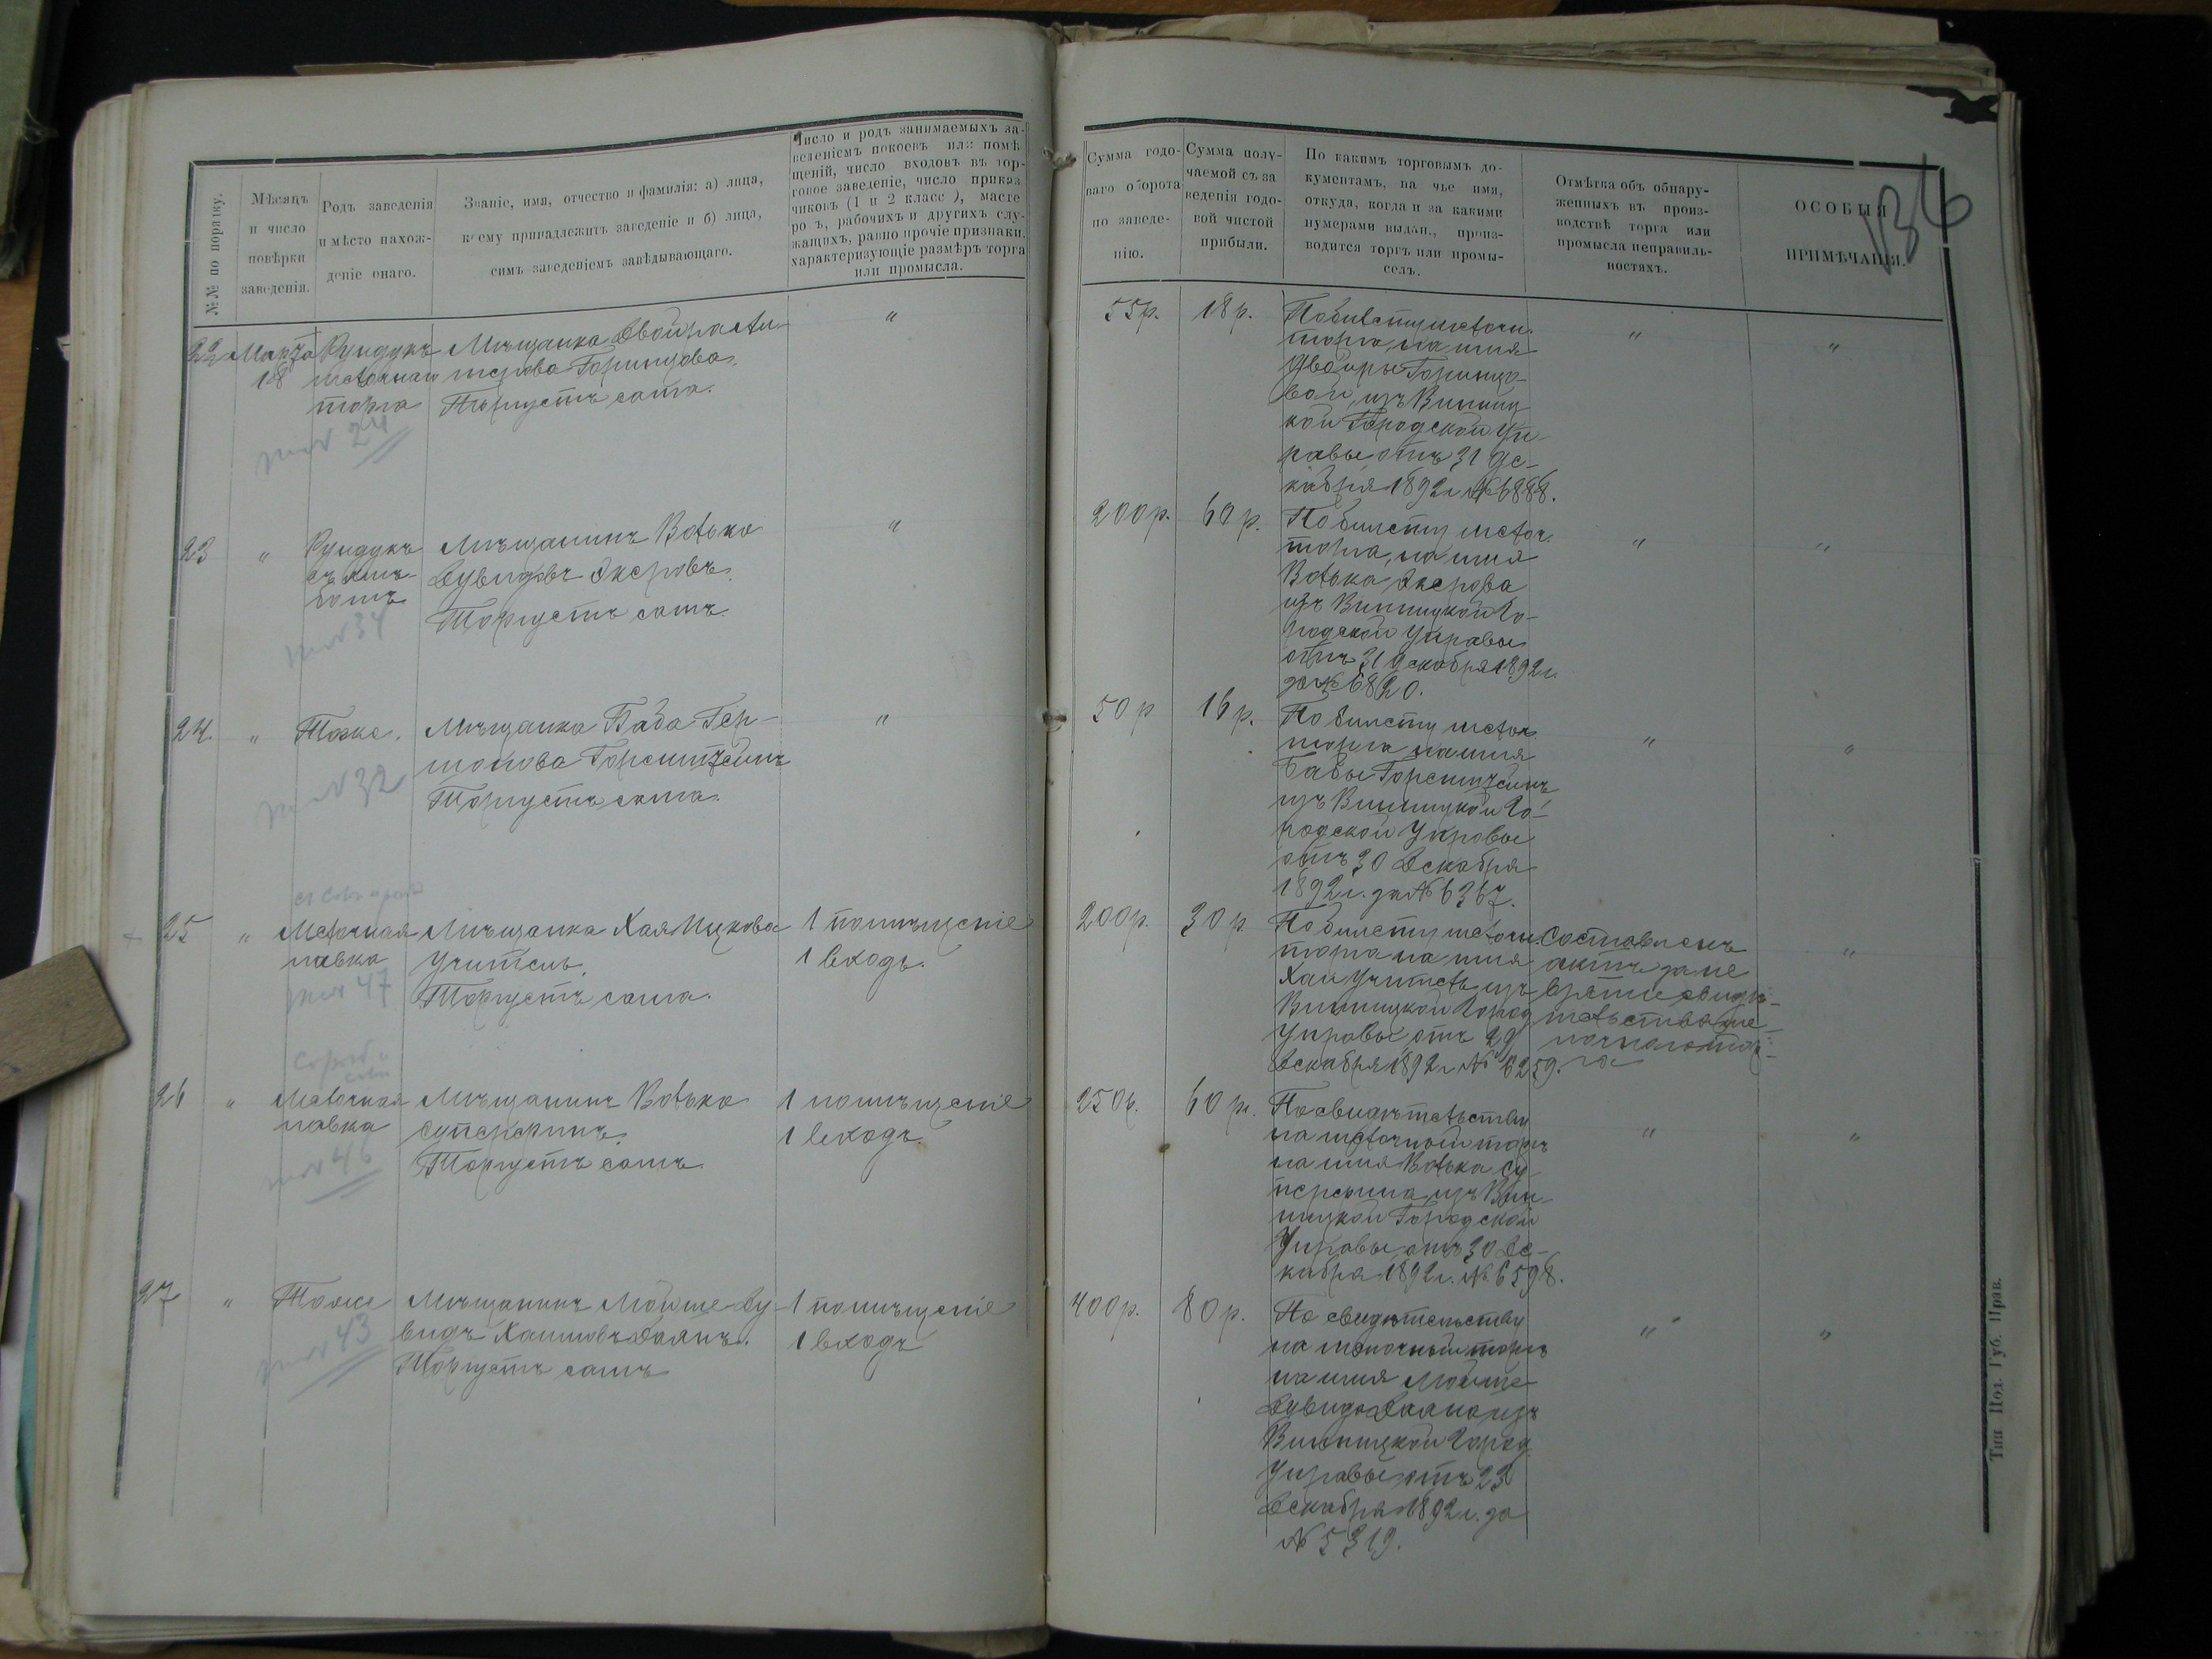 136
№№ по порядку.
Мѣсяцъ
и число
повѣрки
заведенія.
Родъ заведенія
и мѣсто нахож-
деніе онаго.
Званіе, имя, отчество и фамилія: а) лица,
коему принадлежитъ заведеніе и б) лица,
симъ заведеніемъ завѣдывающаго.
Число и родъ занимаемыхъ за-
веденіемъ покоевъ или помѣ
щеній, число входовъ въ тор-
говое заведеніе, число прика
чиковъ (1 и 2 класс ), масте
ро ъ, рабочихъ и другихъ слу-
жащихъ, равно прочіе признаки,
характеризующіе размѣръ торга
или промысла.
Сумма годо-
ваго оборота
по заведе-
нію.
Сумма полу-
чаемой съ за
веденія годо-
вой чистой
прибыли.
По какимъ торговымъ до-
кументамъ, на чье имя,
откуда, когда и за какими
нумерами выдан., произ-
водится торгъ или промы-
селъ.
Отмѣтка объ обнару-
женныхъ въ произ-
водствѣ торга или
промысла неправиль-
ностяхъ.
ОСОБЫЯ
ПРИМѢЧАНІЯ.
22
Марта
18
Рундукъ
мелочнаго
торга
24
Мѣщанка Двойра
Торгуетъ сама.
"
55р.
18 р.
По билету мелочн.
торга, на имя
Двойры
вой, изъ Винниц
кой Городской Уп-
равы отъ 31 Де-
кабря 1892 г № 6888.
"
"
23
"
Рундукъ
съ хлѣ-
бомъ
34
Мѣщанинъ Волько
Дувидовъ Эксровъ.
Торгуетъ самъ.
"
200р.
60 р.
По билету мелоч.
торга, на имя
Волька Эксрова
изъ Винницкой Го-
родской Управы
отъ 31 Декабря 1892 г.
за № 6820.
"
"
24.
"
Тоже.
32
Мѣщанка Баба Гер-
шонова
Торгуетъ сама.
"
50р
16 р.
По билету мелоч.
торга на имя
Бабы
изъ Винницкой Го-
родской Управы
отъ 30 Декабря
1892 г. за № 6367.
"
"
25
"
Мелочная
лавка
47
Мѣщанка Хая Ицкова
Учитель.
Торгуетъ сама.
1 помѣщеніе
1 входъ.
200р.
30 р.
По билету мелочн.
торга на имя
Хаи Учитель изъ
Винницкой Город
Управы, отъ 29
Декабря 1892 г № 6259.
Составленъ
актъ за не
взятіе свидѣ-
тельства ме-
лочнаго тор-
га
"
26
"
Мелочная
лавка
46
Мѣщанинъ Волько
Суперфинъ.
Торгуетъ самъ.
1 помѣщеніе
1 входъ.
250р.
60 р.
По свидѣтельству
на мелочный торгъ
на имя Волька Су
перфина, изъ Вин-
ницкой Городской
Управы, отъ 30 Де-
кабря 1892 г. № 6598.
"
"
27
"
Тоже
43
Мѣщанинъ Мойше-Ду-
видъ Хаимовъ Даянъ.
Торгуетъ самъ
1 помѣщеніе
1 входъ
400р.
80 р.
По свидѣтельству
на мелочный торгъ
на имя Мойше
Дувида Даяна изъ
Винницкой Город
Управы отъ 23
Декабря 1892 г. за
№ 5319.
"
"
Тип Под. Губ. Прав.